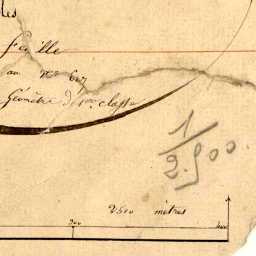 les
feuille
au
Géomètre de 1re classe
1
2.500.
2500 mètres
200